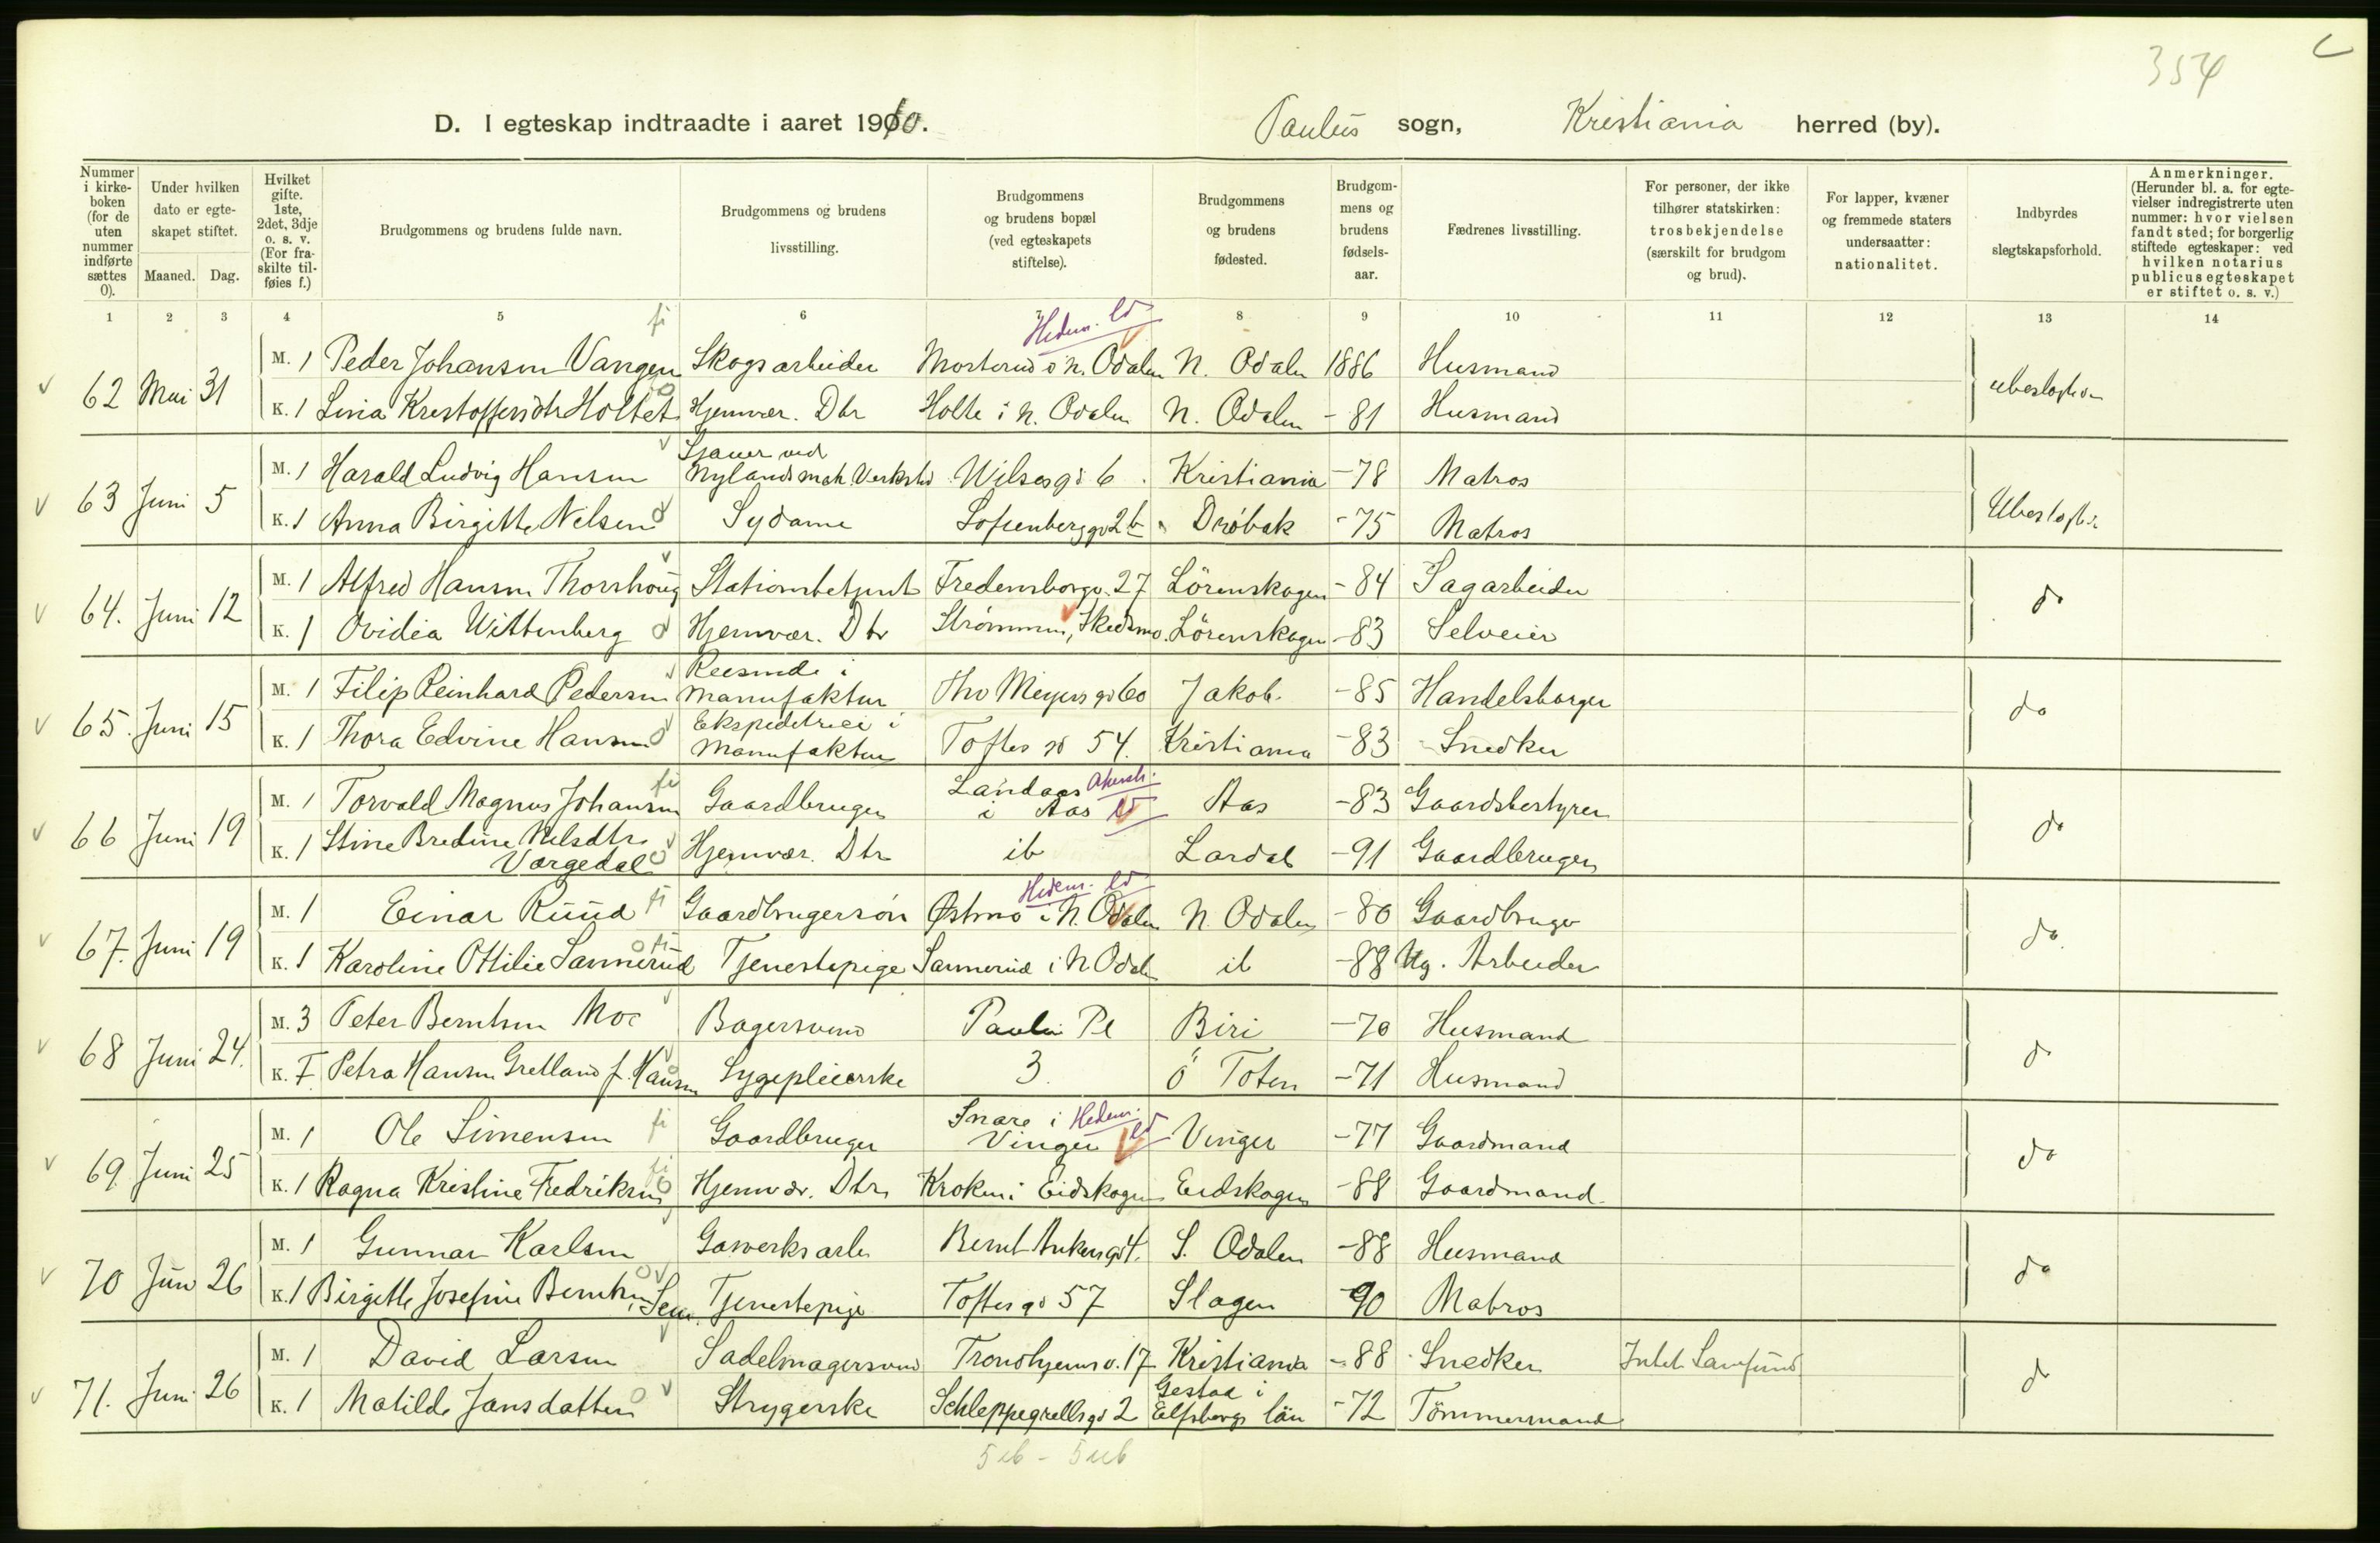 354
D. I egteskap indtraadte i aaret 1910. Paulus sogn, Kristiania herred (by).
Nummer i kirkeboken (for de uten nummer indførte sættes 0). Under hvilken dato er egteskapet stiftet. Maaned. Dag. Hvilket gifte. 1ste, 2det, 3dje o. s. v. (For fraskilte tilføies f.) Brudgommens og brudens fulde navn. Brudgommens og brudens livsstilling. Brudgommens og brudens bopæl (ved egteskapets stiftelse). Brudgommens og brudens fødested. Brudgommens og brudens fødselsaar. Fædrenes livsstilling. For personer, der ikke tilhører statskirken: trosbekjendelse (særskilt for brudgom og brud). For lapper, kvæner og fremmede staters undersaatter: nationalitet. Indbyrdes slegtskapsforhold. Anmerkninger. (Herunder bl. a. for egtevielser indregistrerte uten nummer: hvor vielsen fandt sted; for borgerlig stiftede egteskaper: ved hvilken notarius publicus egteskapet er stiftet o. s. v.)
1 2 3 4 5 6 7 8 9 10 11 12 13 14
Hedem.
62 Mai 31 M. 1 Peder Johansen Vangen Skogsarbeider Mosterud i N. Odalen N. Odalen 1886 Husmand
K. 1 Lina Kristoffersdtr Holtet Hjemvær. Dtr Holte i N. Odalen N. Odalen -81 Husmand
63 Juni 5 M. 1 Harald Ludvig Hansen Sjauer ved Nylands mek. Verksted Wilsesgd 6 Kristiania -78 Matros
K. 1 Anna Birgitte Nelsen Sydame Sofienberggd 2b Drøbak -75 Matros
64. Juni 12 M. 1 Alfred Hansen Thorshoug Stationsbetjent Fredensborgv. 27 Lörenskogen -84 Sagarbeider do
K. 1 Ovidia Wittenberg Hjemvær. Dtr Strømmen, Skedsmo. Lörenskogen -83 Selveier
65. Juni 15 M. 1 Filip Reinhard Pedersen Reisende i Manufaktur Thv Meyers gd 60 Jakob. -85 Handelsborger do
K. 1 Thora Edvine Hansen Ekspeditrice i Manufaktur Toftes gd 54. Kristiania -83 Snedker
66 Juni 19 M. 1 Torvald Magnus Johansen Gaardbruger Landaas i Aas Akersh. Aas -83 Gaardsbestyrer do
K. 1 Stine Bredine Nilsdtr Vargedal Hjemvær. Dtr ib Lardal -91 Gaardbruger
Hedem.
67. Juni 19 M. 1 Einar Ruud Gaardbrugersøn Østmo i N. Odalen N. Odalen -80 Gaardbruger do
K. 1 Karoline Ottilie Sannerud Tjenestepige Sannerud i N Odal ib -88 Arbeider
68 Juni 24. M. 3 Peter Berntsen Moe Bagersvend Paulus Pl Biri -70 Husmand do
K. F. Petra Hansen Gretland f. Hansen Sygepleierske 3. Ö Toten -71 Husmand
69 Juni 25 M. 1 Ole Simensen Gaardbruger Snare i Vinger Hedem. Vinger -77 Gaardmand do
K. 1 Ragna Kristine Fredriksen Hjemvær. Dtr Kroken i Eidskogen Eidskogen -88 Gaardmand
70 Juni 26 M. 1 Gunnar Karlsen Gasverksarb. Bernt Ankers gd 4. S. Odalen -88 Husmand do
K. 1 Birgitte Josefine Berntsen, Sem Tjenestepige Toftes gd 57 Slagen -90 Matros
71. Juni 26 M. 1 David Larsen Sadelmagersvend Trondhjemsv. 17 Kristiania -88 Snedker Intet Samfund do
K. 1 Matilde Jansdatter Strygerske Schleppegrellsgd 2 Gestad i Elfsborgs län -72 Tömmermand
5 ib - 5 uib